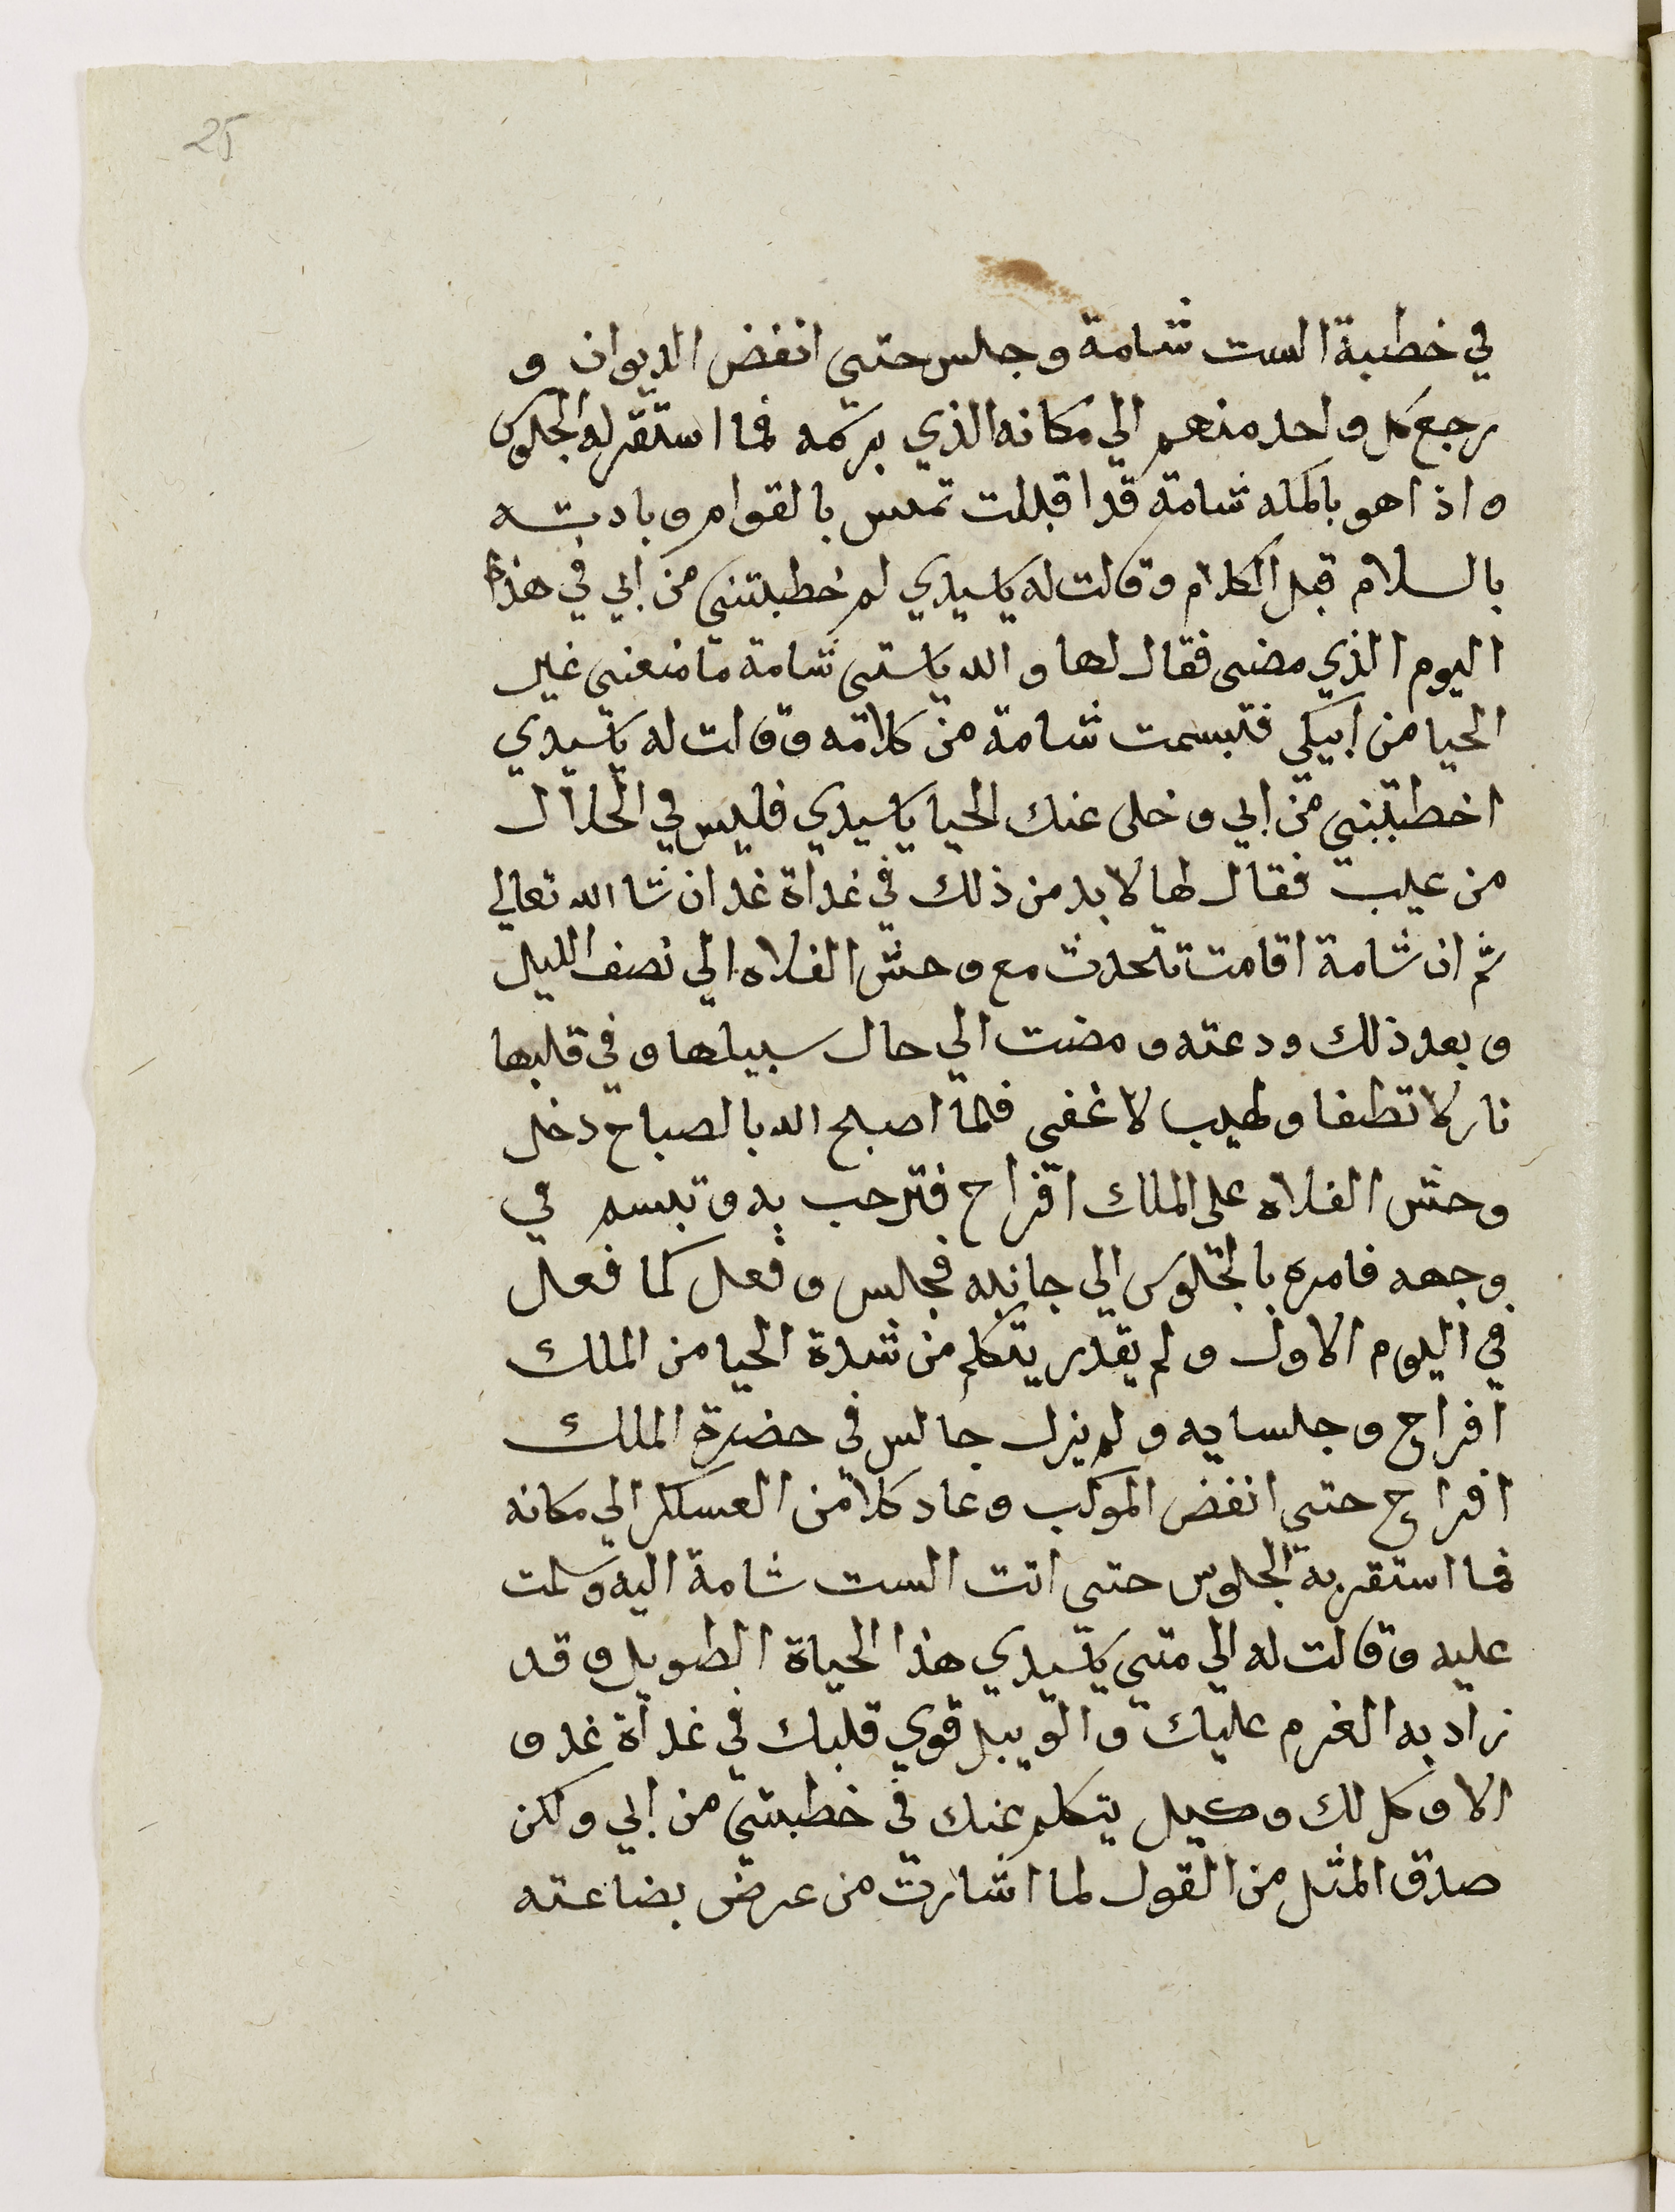 25
في خطبة الست شامة وجلس حتى انفض الديوان و
رجع كل واحد منهم الي مكانه الذي برسمه فما استقر له الجلوس
واذا هو بالملكه شامة قد اقبلت تميس بالقوام وبادته
بالسلام قبل الكلام وقالت له يا سيدي لم خطبتني من ابي في هذا
اليوم الذي مضى فقال لها والله يا ستي شامة ما منعني غير
الحيا من ابيكي فتبسمت شامة من كلامه وقالت له يا سيدي
اخطبني من ابي وخلى عنك الحيا يا سيدي فليس في الحلال
من عيب فقال لها لا بد من ذلك في غداة غد ان شا الله تعالي
ثم ان شامة اقامت تتحدث مع وحش الفلاه الي نصف الليل
وبعد ذلك ودعته ومضت الي حال سبيلها وفي قلبها
نار لا تطفا ولهيب لا غفى فلما اصبح الله بالصباح دخل
وحش الفلاه على الملك افراح فترحب به وتبسم في
وجهه فامره بالجلوس الي جانبه فجلس وفعل كما فعل
في اليوم الاول ولم يقدر يتكلم من شدة الحيا من الملك
افراح وجلسايه ولم يزل جالس في حضرة الملك
افراح حتى انفض الموكب وعاد كلا من العسكر الي مكانه
فما استقر به الجلوس حتى اتت الست شامة اليه وسلمت
عليه وقالت له الي متى يا سيدي هذا الحياة الطويل وقد
زاد به الغرم عليك والويل قوي قلبك في غداة غد و
الا وكل لك وكيل يتكلم عنك في خطبتي من ابي ولكن
صدق المثل من القول لما اشارت من عرض بضاعته